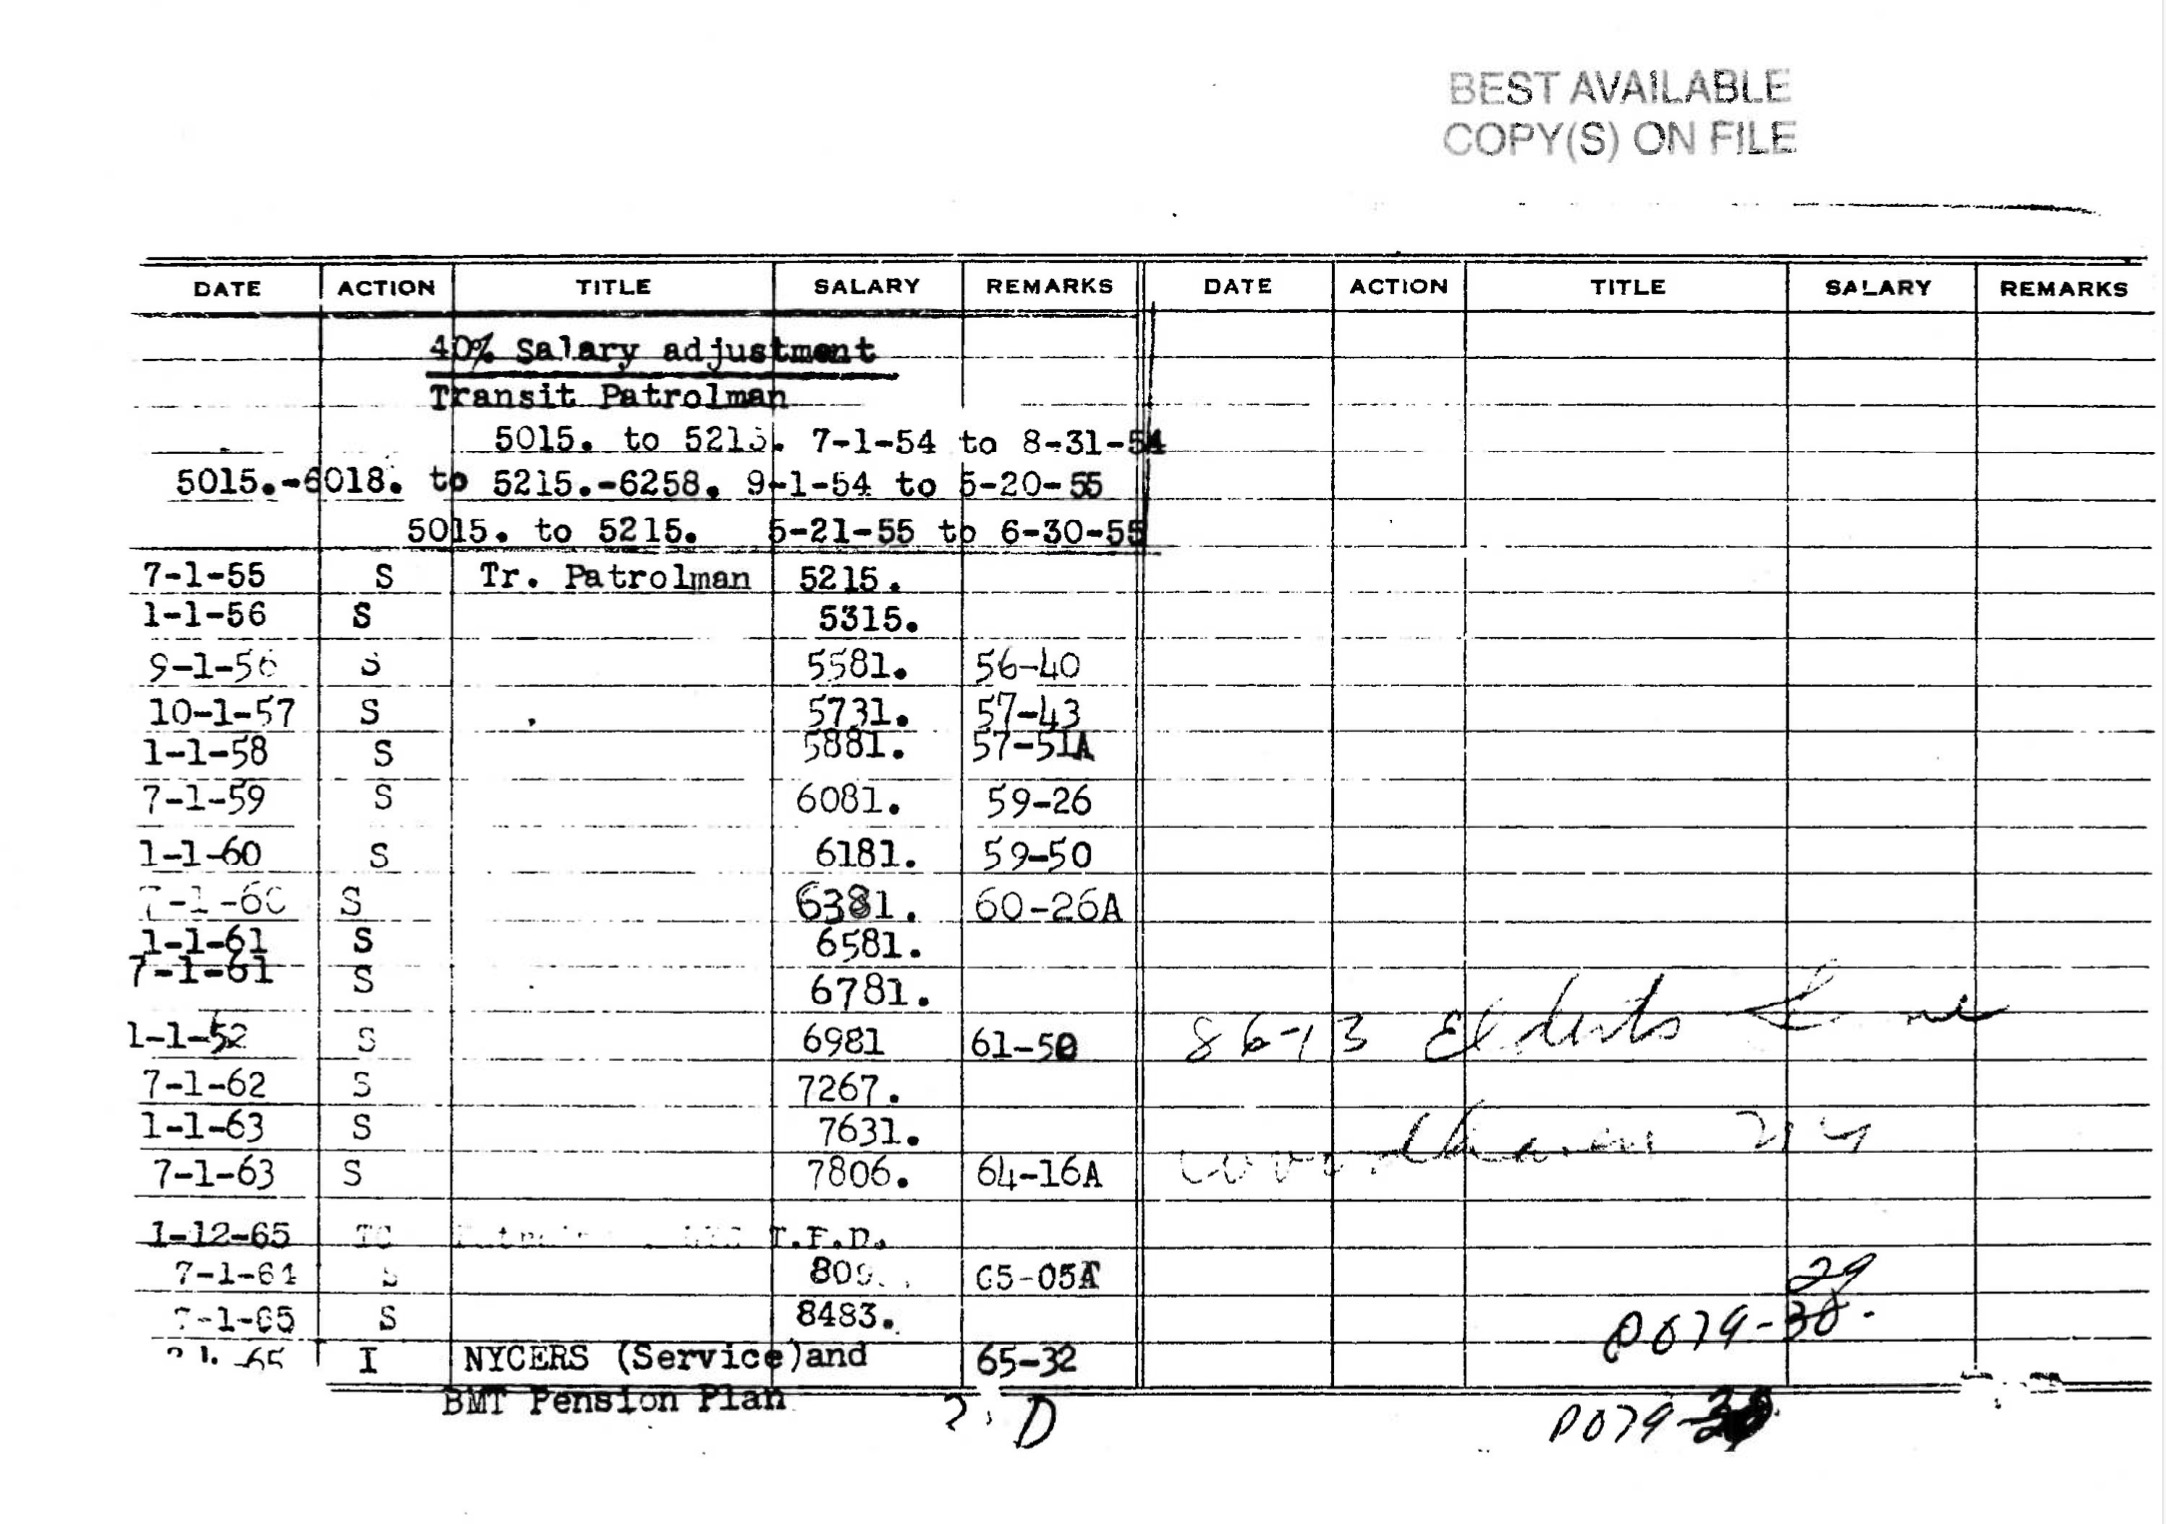 BEST AVAILABLE
COPY(S) ON FILE
DATE ACTION TITLE SALARY REMARKS DATE ACTION TITLE SALARY REMARKS
40% Salary adjustment
Transit Patrolman
5015. to 5215. 7-1-54 to 8-31-54
5015.-6018. to 5215.-6258. 9-1-54 to 5-20-55
5015. to 5215. 5-21-55 to 6-30-55
7-1-55 S Tr. Patrolman 5215.
1-1-56 S 5315.
9-1-56 S 5581. 56-40
10-1-57 S 5731. 57-43
1-1-58 S 5881. 57-51A
7-1-59 S 6081. 59-26
1-1-60 S 6181. 59-50
7-1-60 S 6381. 60-26A
1-1-61 S 6581.
7-1-61 S 6781.
S 6981 61-50 86-13 Elderts Lane
7-1-62 S 7267.
1-1-63 S 7631. Woodhaven NY
7-1-63 S 7806. 64-16A
1-12-65
7-1-64 S 29
7-1-65 S 8483. P079-
I NYCERS (Service)and 65-32
BMT Pension Plan D P079-